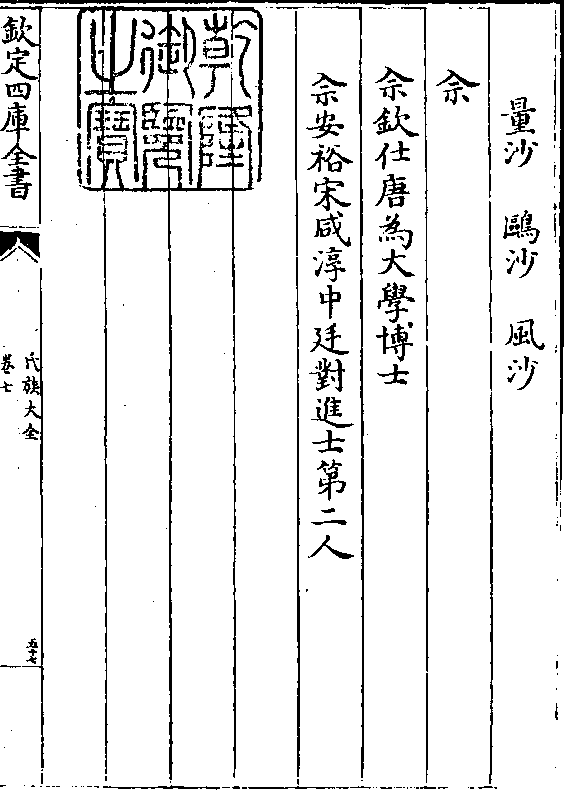 量沙　鷗沙　風沙
佘
佘欽仕唐為大學博士
佘安裕宋咸淳中廷對進士第二人
乾隆御覽之寶
欽定四庫全書
氏族大全
卷七
五十七